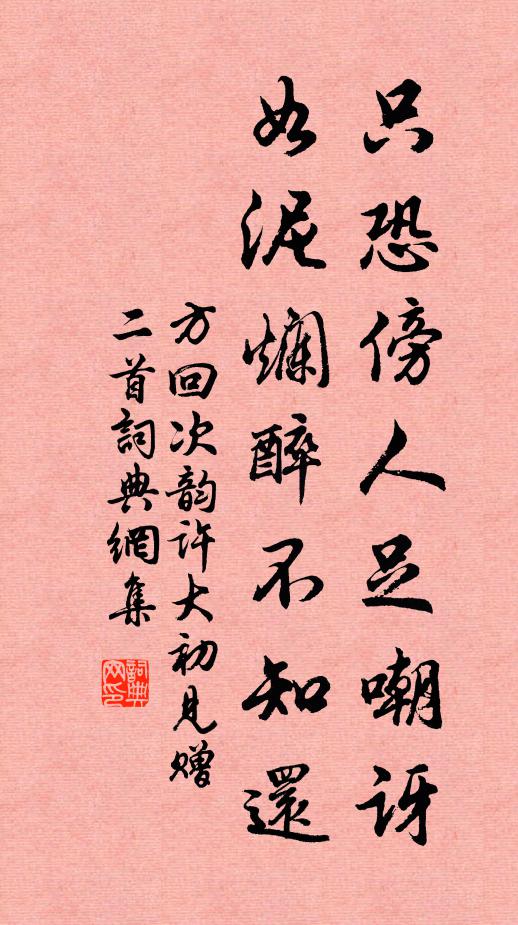 只恐傍人足嘲訝
如泥爛醉不知還
方回次韵許大初見贈
二首詞典網集
詞典
网印